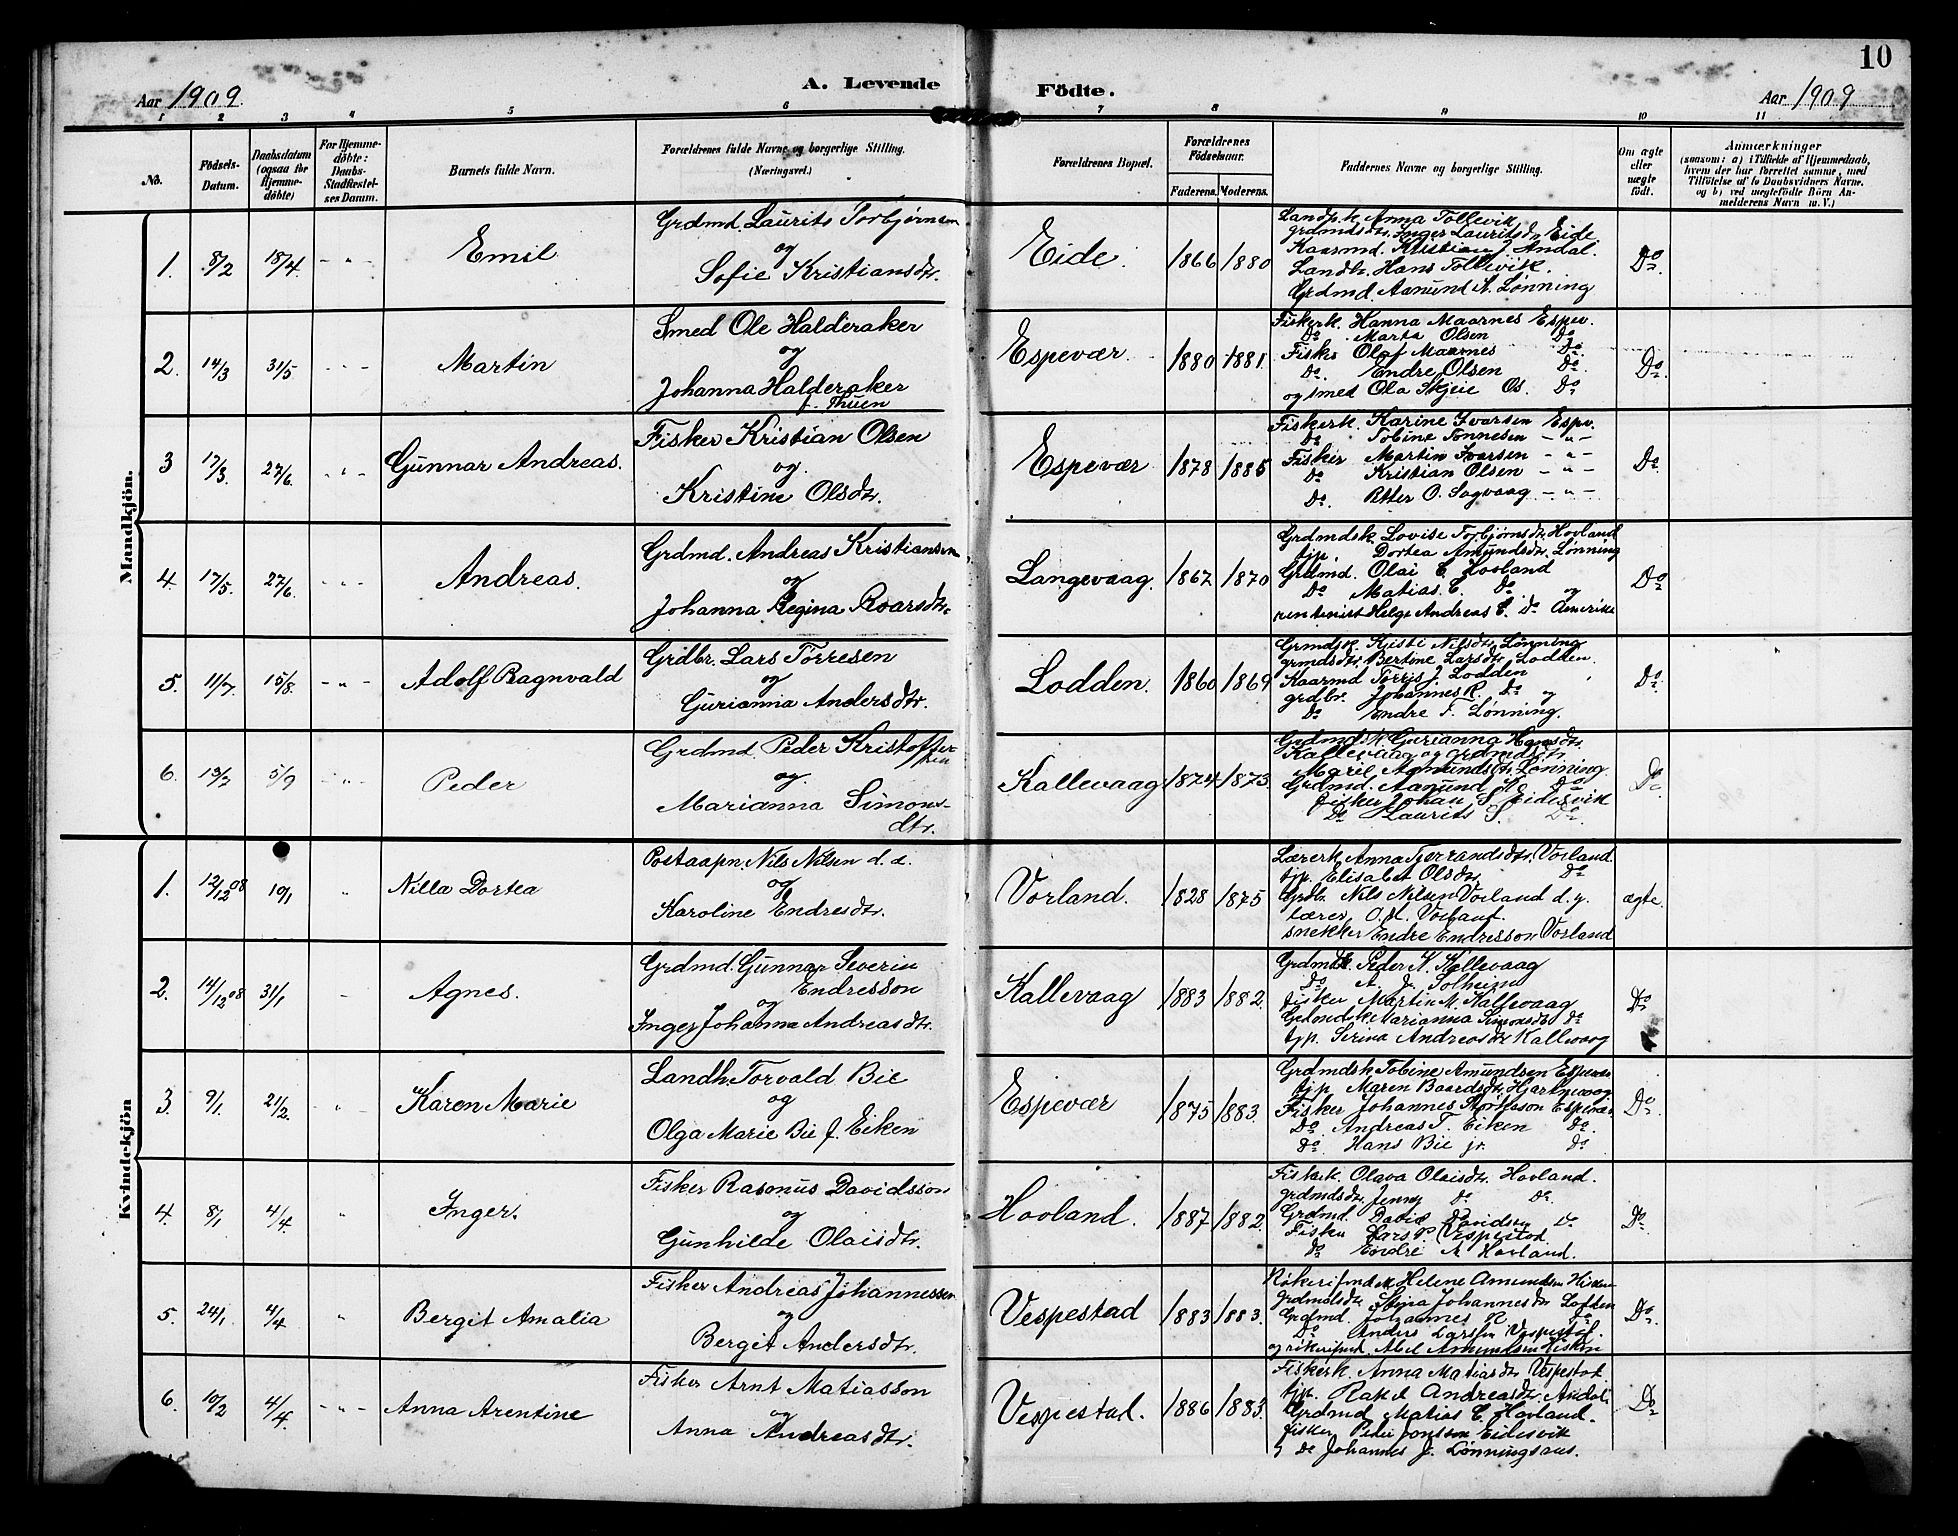 10
Aar 1909. A. Levende Födte. Aar 1909
1 2 3 4 5 6 7 8 9 10 11
No. Födsels-Datum. Daabsdatum (ogsaa for Hjemme-döbte) For Hjemme-döbte: Daabs-Stadfæstel-ses Datum. Barnets fulde Navn. Forældrenes fulde Navne og borgerlige Stilling. (Næringsvei.) Forældrenes Bopæl. Forældrenes Födselsaar. Faderens. Moderens. Faddernes Navne og borgerlige Stilling. Om ægte eller uægte födt. Anmærkninger (saasom: a) i Tilfælde af Hjemmedaab, hvem der har forrettet samme, med Tilföielse af to Daabsvidners Navne, og b) ved uægtefödte Börn An-melderens Navn m. V.)
Mandkjön.
1. 8/2 18/4 - " - Emil
Grdmd. Laurits Torbjørnsen
og
Sofie Kristiansdtr.
Eide. 1866 1880
Landh.k. Anna Tollevik
grdmdsdtr. Inger Lauritsdtr. Eide
Kaarmd. Kristian J. Andal.
Landh. Hans Tollevik.
Grdmd. Aamund A. Lønning
Do.
2. 14/3 31/5 - " - Martin
Smed Ole Halderaker
og
Johanna Halderaker
f. Thuen
Espevær. 1880 1881.
Fiskerk. Hanna Maarnes Espev.
Do. Marta Olsen Do
Fisker Olaf Maarnes Do
Do. Endre Olsen Do.
og smed Ola Skjeie Os. Do
Do.
3 17/3. 27/6. " Gunnar Andreas.
Fisker Kristian Olsen
og
Kristine Olsdtr.
Espevær 1878 1885
Fiskerk. Karine Ivarsen Espv.
Do Tobine Tønnesen - " -
Fisker Martin Ivarsen - " -
Do Kristian Olsen - " -
Do. Petter O. Sagvaag - " -
Do.
4. 17/5. 27/6. - " - Andreas.
Grdmd. Andreas Kristiansen
og
Johanna Regina Roarsdtr.
Langevaag. 1867 1870
Grdmdsk. Lovise Torbjørnsdtr. Hovland
tjp. Dortea Amundsdtr. Lønning
Grdmd. Olai C. Hovland
Do Matias C. Do og
rentenist Helge Andreas C. Do Amerika
Do
5. 11/7. 15/8. - " - Adolf Ragnvald
Grdbr. Lars Tørresen
og
Gurianna Andersdtr.
Lodden. 1860 1869.
Grmdsk. Kjisti Nilsdtr. Lønning
grmdsdtr. Bertine Larsdtr. Lodden.
Kaarmd Torris J. Lodden
grdbr. Johannes R. Do og
Do Endre T. Lønning.
Do.
6. 19/7 5/9 " Peder
Grdmd. Peder Kristoffer-
sen
og.
Marianna Simons-
dtr.
Kallevaag 1874 1873.
Grdmds.k. Gurianna Hansdtr.
Kallevaag og grdmdsdtr.
Maril Aamundsdtr. Lønning.
Grdmd. Aamund A. Do
Fisker Johan S. Eidesvik
Do Laurits S. Do.
Do
Kvindekjön
1. 12/12 08 10/1 " Nilla Dortea
Postaapn. Nils Nilsen d. e.
og
Karoline Endresdtr.
Vorland. 1828 1875
Lærerk. Anna Tjerandsdtr. Vorland
tjp. Elisabet Olsdtr. Do
Grdbr. Nils Nilsen Vorland d. y.
lærer O. A. Vorland.
snekker Endre Endresson Vorland
ægte.
2. 14/12 08 31/1 - Agnes.
Grdmd. Gunnar Severin
Endresson
og
Inger Johanna Andreasdtr.
Kallevaag 1883 1882.
Grdmd. Peder K. Kallevaag
Do. A. J. Solheim
fisker Martin M. Kallevaag
Grdmdsk. Marianna Simonsdtr. Do
tjp. Serina Andreasdtr. Kallevaag
Do
3. 9/1. 21/2. " Karen Marie
Landh. Torvald Bie
og
Olga Marie Bie f. Eiken
Espevær 1875 1883.
Grdmdsk Tobine Amundsen Espevær
tjp. Maren Baardsdtr.
Fisker Johannes Espevær
Do. Andreas T. Eiken Do.
Do. Hans Bie jr. Do
Do.
4. 8/1 4/4 " Inger.
Fisker Rasmus Davidsson
og
Gunhilde Olaisdtr.
Hovland. 1887 1882.
Fiskerk. Olava Olaisdtr. Hovland.
grdmdsdtr. Jenny Do Do.
Grdmd. David Davidsen Do
Fisker Lars P. Vespestad.
Do Endre A Hovland.
Do.
5. 24/1. 4/4 " Bergit Amalia
Fisker Andreas Johannessen
og
Bergit Andersdtr.
Vespestad 1883 1883.
Helene Amundsen Hisken
grdmdsdtr. Stina Johannesdtr. Loften
Grdmd. Johannes R. Do.
Do Anders Larssen Vespestad.
og Abel Amundsen Hisken
Do.
6. 10/2 4/4. - " - Anna Arentine
Fisker Arnt Matiasson
og
Anna Andreasdtr.
Vespestad. 1886 1883.
Fiskerk. Anna Matiasdtr. Vespestad.
tjp. Rakel Andreasdtr. Andal
Grdmd Matias C. Hovland.
fisker Peder Jonsson Eidesvik
og Do Johannes J. Lønningsnes.
Do